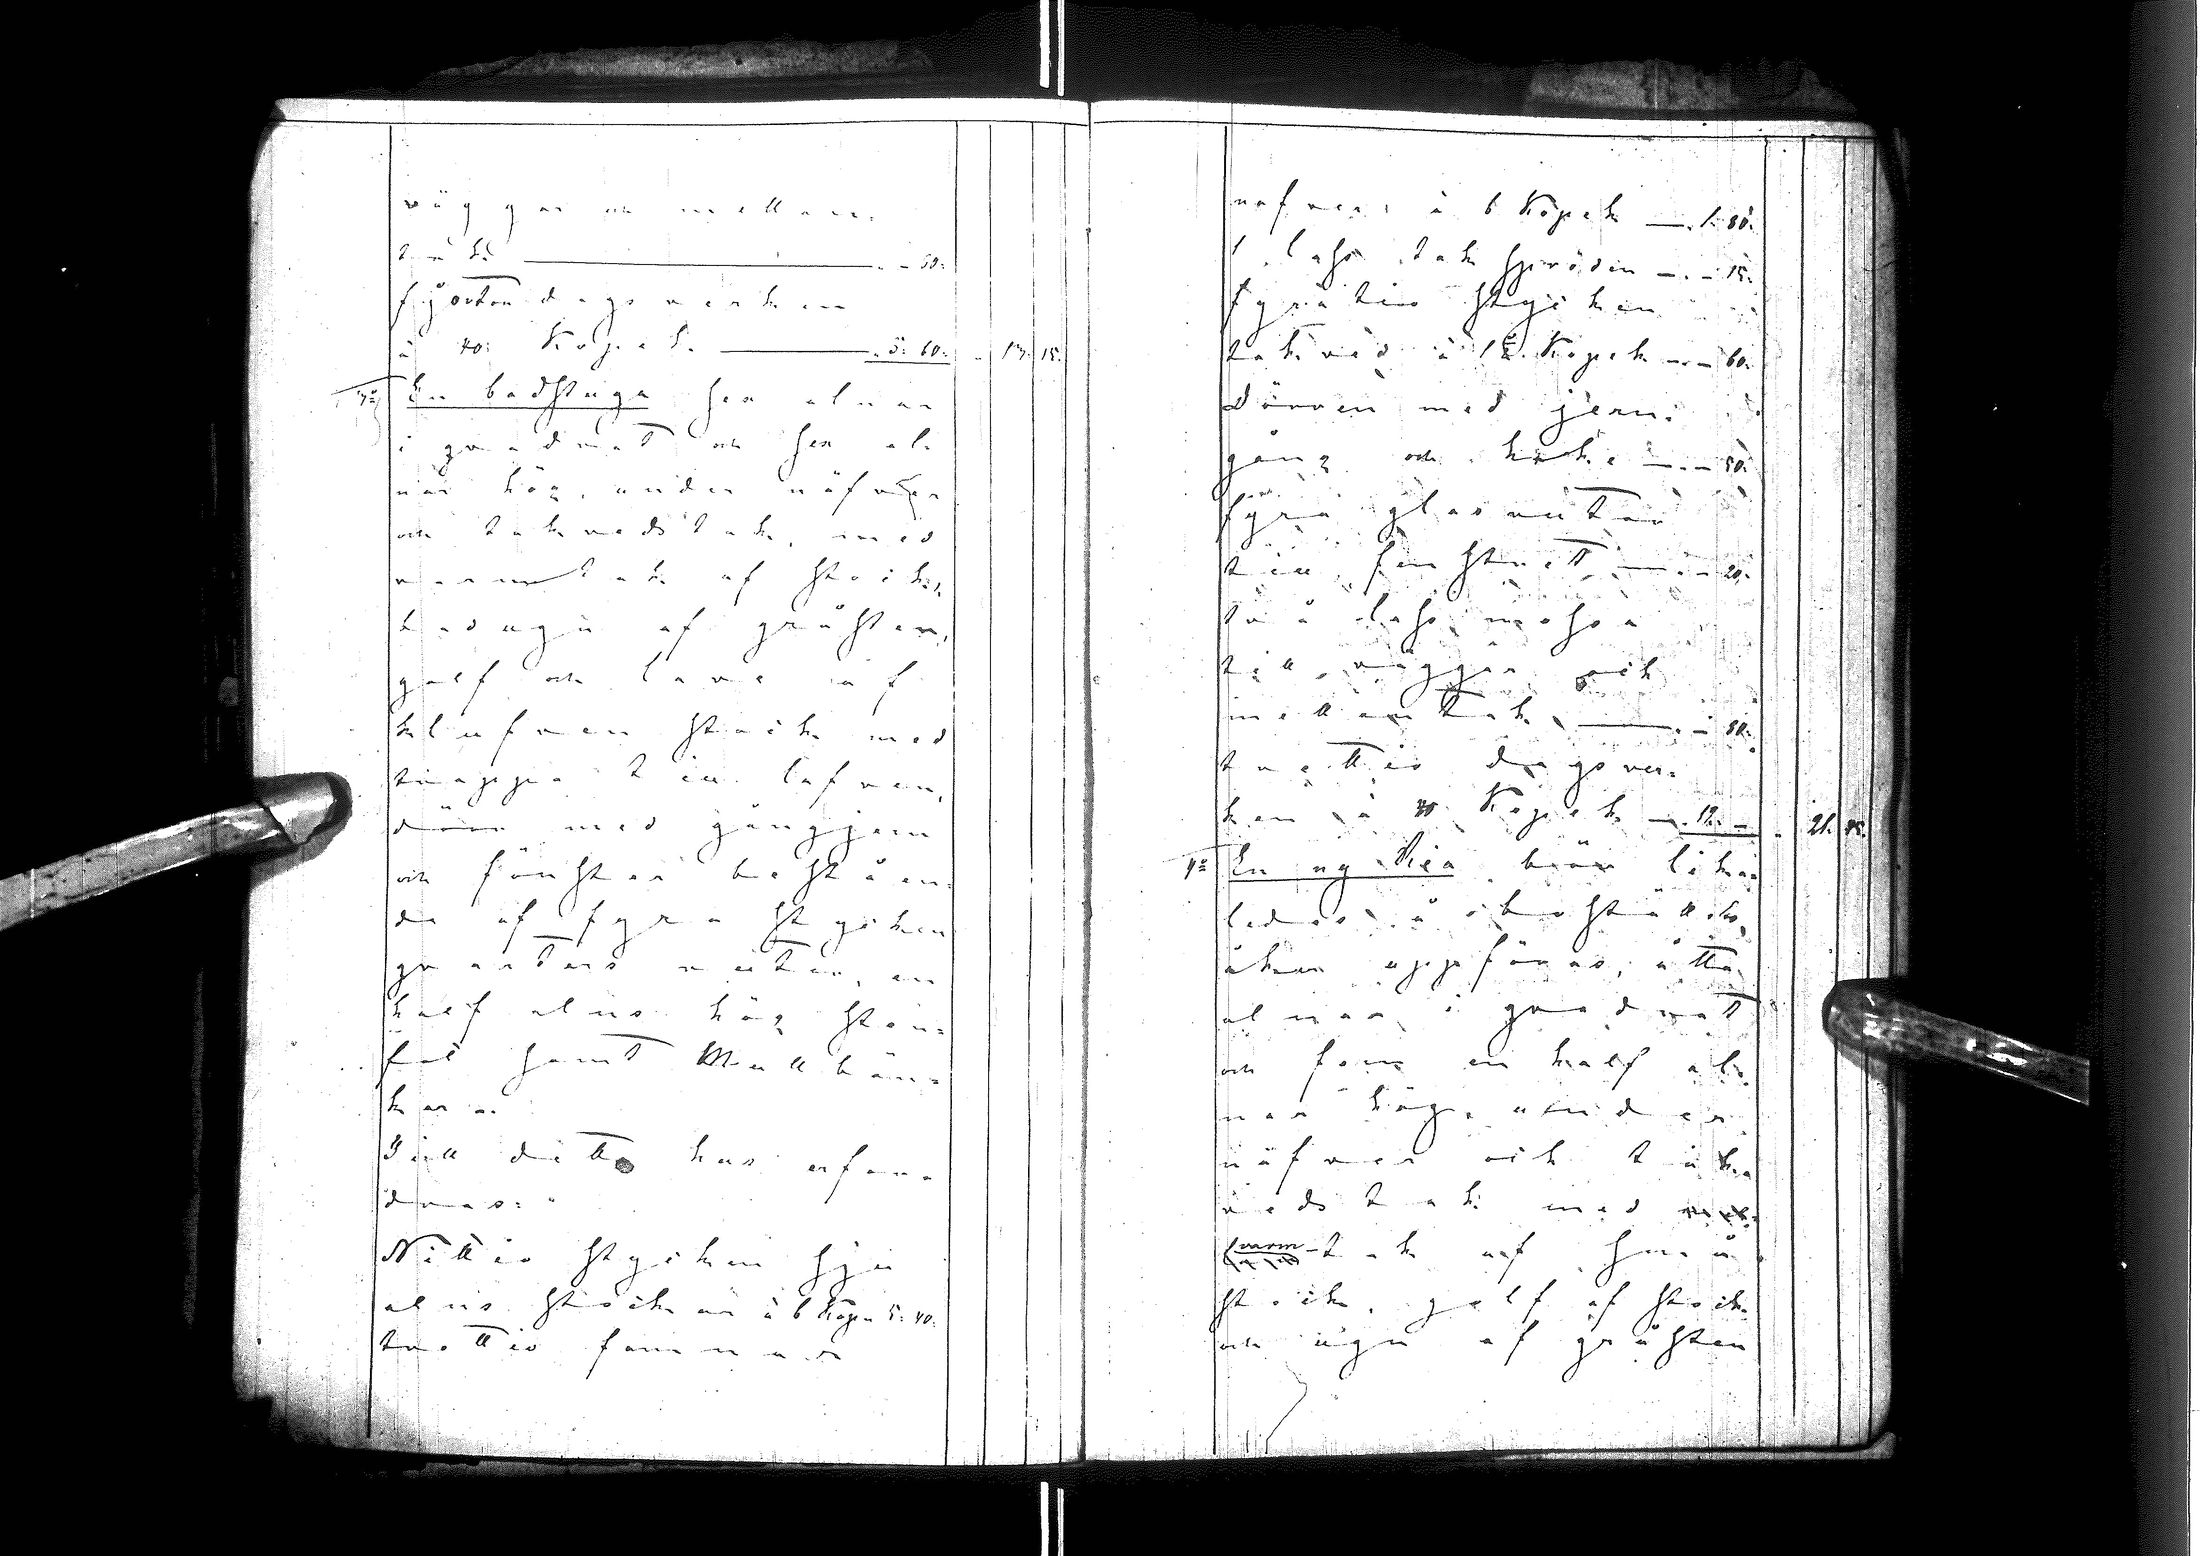 väggar och mellan-
tak. ——— " — 50.
fjorton dagsverken
à 40. Kopek. ——— 5. 60. 13. 15.
3:o En badstuga sex alnar
i qvadrat och sex al-
nar hög, under näfver
och takvedstak, med
varmtak af stock,
badugn af gråsten,
golf och lave af
klufven stock med
trappa till lafven,
dörr med gångjern
och fönster beståen-
de af fyra stycken
qvarters rutor, en
half alns hög sten-
fot samt Mullbän-
kar.
Till detta hus erfor-
dras:
Nittio stycken sju
alns stockar à 6 Kopek 5. 40.
trettio famnar
näfver à 6 Kopek — 1. 80.
1 lass takspröden — " — 15.
fyratio stycken
takved à 1½ Kopek — " — 60.
Dörren med jern-
gång och hake — " — 50.
fyra glasrutor
till fenstret — " — 20.
två lass mossa
till väggar och
mellantak, — " — 80.
trettio dagsver-
ken à 40 Kopek — 12. — 21. 45.
4:o En ny Ria bör lika-
ledes å boställs-
åker uppföras, åtta
alnar i qvadrat
och fem en half al-
nar hög, under
näfver och tak-
vedstak med
varm-tak af små
stock, golf af stock
och ugn af gråsten